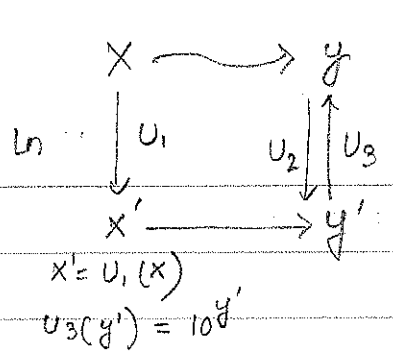 X y
ln U₁ U₂ U₃
x' y'
x' = U₁(x)
U₃(y') = 10^y'